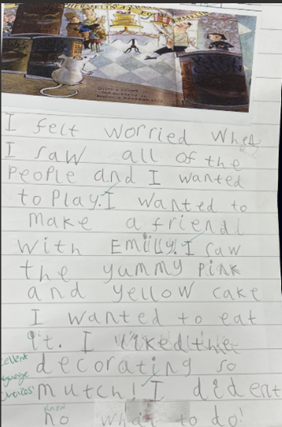 I felt worried when
I saw all of the
People and I wanted
to Play. I wanted to
make a friend
with Emilly. I saw
the yummy pink
and yellow cake
I wanted to eat
it. I liked the
decorating so
mutch! I dident
know
no what to do!